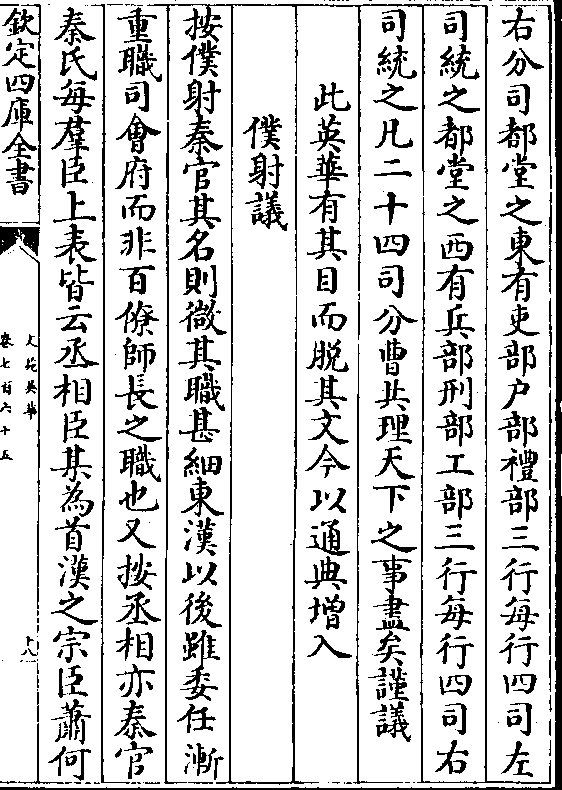 右分司都堂之東有吏部户部禮部三行每行四司左
司統之都堂之西有兵部刑部工部三行每行四司右
司統之凡二十四司分曹共理天下之事盡矣謹議
此英華有其目而脱其文今以通典增入
僕射議
按僕射秦官其名則微其職甚細東漢以後雖委任漸
重職司會府而非百僚師長之職也又按丞相亦秦官
秦氏每羣臣上表皆云丞相臣某為首漢之宗臣蕭何
欽定四庫全書
文苑英華
卷七百六十五
十八